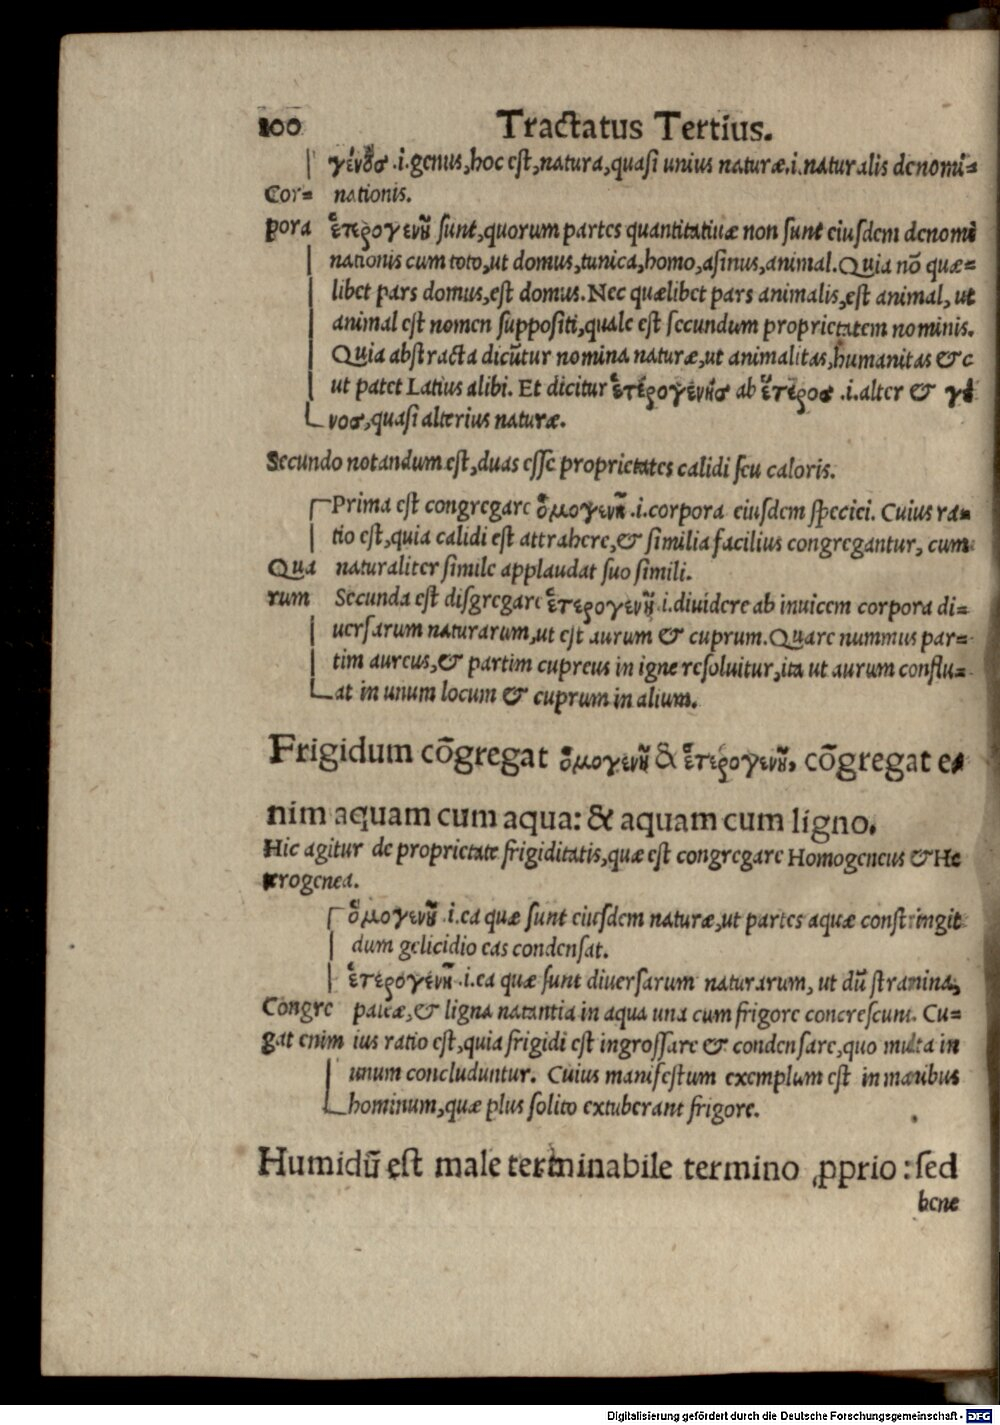 100 Tractatus Tertius.
γένοσ .i. genus, hoc est, natura, quasi unius naturæ .i. naturalis denomi-
Cor= nationis.
pora ἑτερογενῆ sunt, quorum partes quantitatiuæ non sunt eiusdem denomi
nationis cum toto, ut domus, tunica, homo, asinus, animal. Quia nõ quæ=
libet pars domus, est domus. Nec quælibet pars animalis, est animal, ut
animal est nomen suppositi, quale est secundum proprietatem nominis.
Quia abstracta dicũtur nomina naturæ, ut animalitas, humanitas &c
ut patet Latius alibi. Et dicitur ἑτέρογένησ ab ἕτέροσ .i. alter & γέ
νοσ, quasi alterius naturæ.
Secundo notandum est, duas esse proprietates calidi seu caloris.
Prima est congregare ὁμογενῆ .i. corpora eiusdem speciei. Cuius ra=
tio est, quia calidi est attrahere, & similia facilius congregantur, cum
Qua naturaliter simile applaudat suo simili.
rum Secunda est disgregare ἑτερογενῆ .i. diuidere ab inuicem corpora di=
uersarum naturarum, ut est aurum & cuprum. Quare nummus par=
tim aureus, & partim cupreus in igne resoluitur, ita ut aurum conflu=
at in unum locum & cuprum in alium.
Frigidum cõgregat ὁμογενῆ & ἑτερογενῆ, cõgregat e-
nim aquam cum aqua: & aquam cum ligno.
Hic agitur de proprietate frigiditatis, quæ est congregare Homogeneus & He
terogenea.
ὁμογενῆ .i. ea quæ sunt eiusdem naturæ, ut partes aquæ constringit
dum gelicidio eas condensat.
ἑτέρογένῆ .i. ea quæ sunt diuersarum naturarum, ut dũ stramina,
Congre paleæ, & ligna natantia in aqua una cum frigore concrescunt. Cu=
gat enim ius ratio est, quia frigidi est ingrossare & condensare, quo multa in
unum concluduntur. Cuius manifestum exemplum est in manibus
hominum, quæ plus solito extuberant frigore.
Humidũ est male terminabile termino ꝓprio : sed
bene
Digitalisierung gefördert durch die Deutsche Forschungsgemeinschaft - DFG